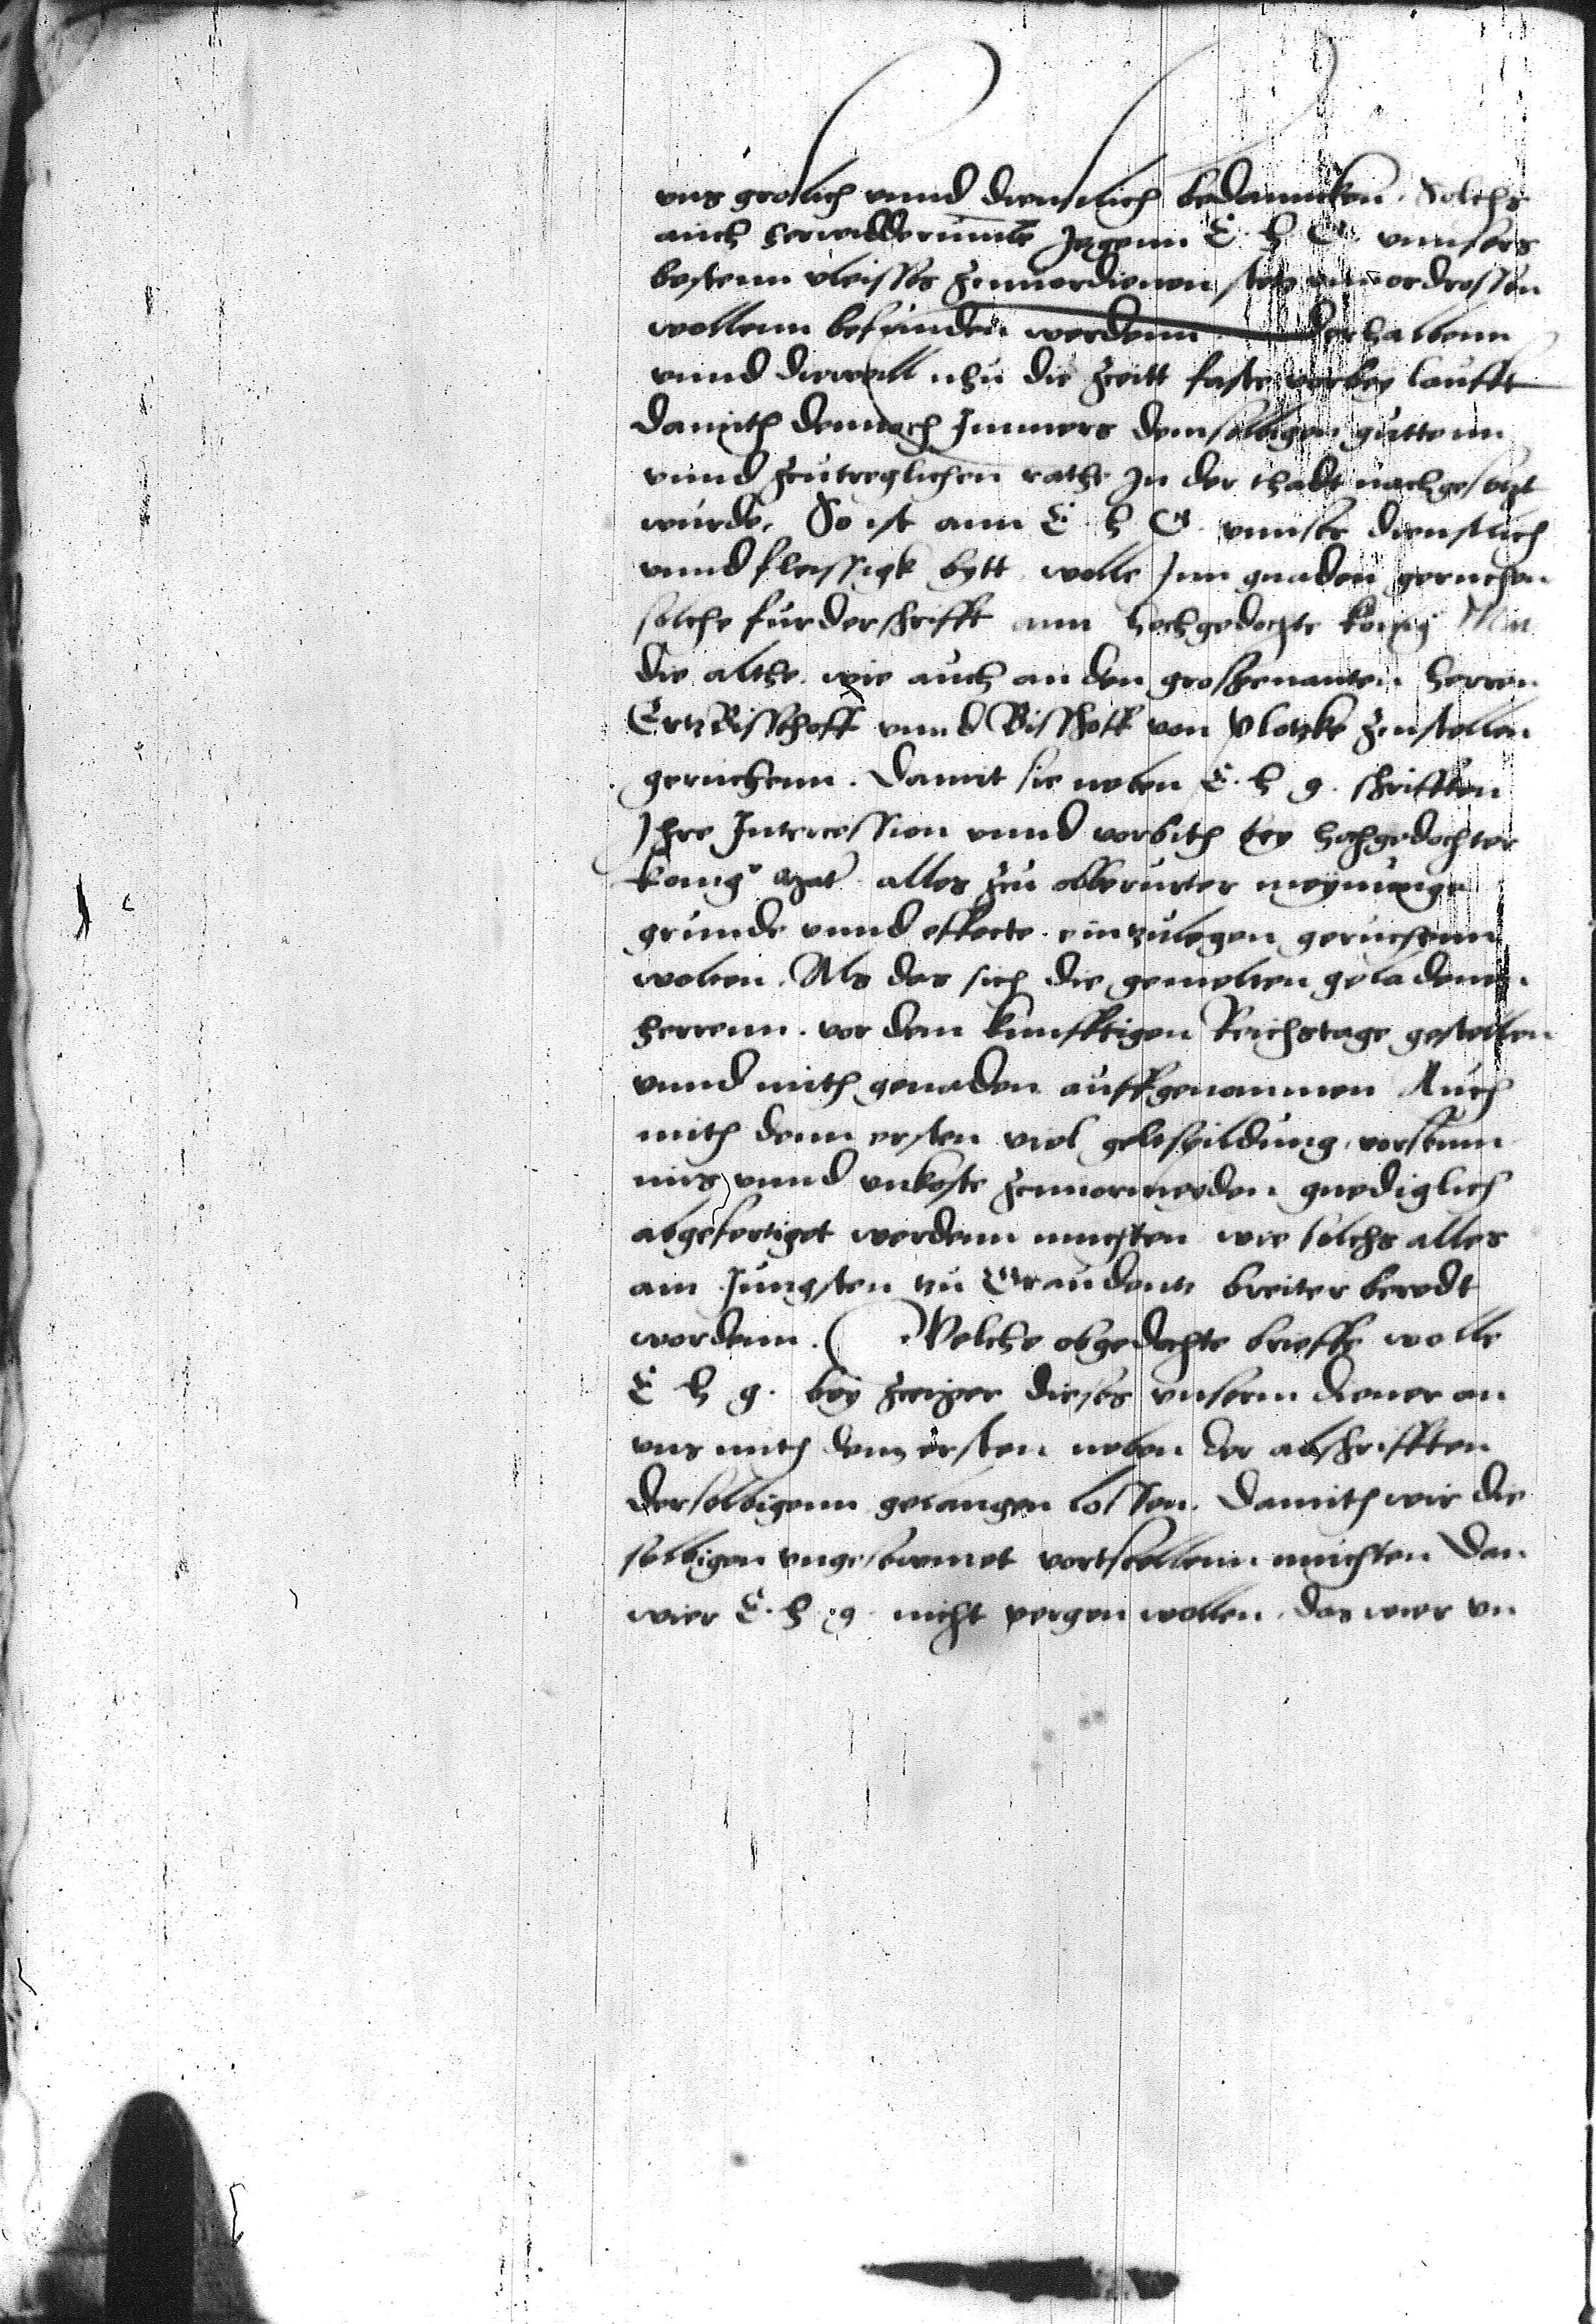 uns grolich unnd dienstlich bedanncken. Solchs
auch herwidderumb Jegenn E. h G. unnsers
bestenn vleisses zcuuordienen stetz unuordrossen
wollenn befunden werdenn. derhalbenn
unnd dieweill nhu die zceitt faste vorbey laufft
damith dennoch Immers demselbigen guttenn
unnd zcutreglichen rathe In der thadt nachgesetzt
wurde, So ist ann E. h G. unnser dienstlich
unnd fleissigk bytt wolle Jnn gnaden geruchen
solche furderschrifft ann hochgedochte konig Mat
die althe. wie auch an den grosgenanten herren
Ertzbisschoff unnd Bisschoff von Plotzke zcustellen
geruchenn. Damit sie neben E. h g. schrifften
Jhre Intercession unnd vorbith bey hochgedochter
konig' Mat alles zcu obberurter meynunge
grunde unnd effecte einzulegen geruchenn
wolten. Als das sich die gemelten geladenen
herrenn. vor dem kunfftigen Reichstage gestellen
unnd mith genaden auffgenommen Auch
mith denn ersten viel geltspildung, vorseum
nis unnd unkoste zcuuormeyden gnediglich
abgefertiget werdenn muchten wie solchs alles
am Jungsten zu Graudentz breiter beredt
wordenn. Welche obgedachte brieffe wolle
E h g. bey zceiger dieses unserm diener an
uns mith dem ersten neben der abschrifften
derselbigenn gelangen lossen. Damith wir die
selbigen ungeseumet vortstellenn muchten Dan
wier E. h. g. nicht pergen wollen, das wier un